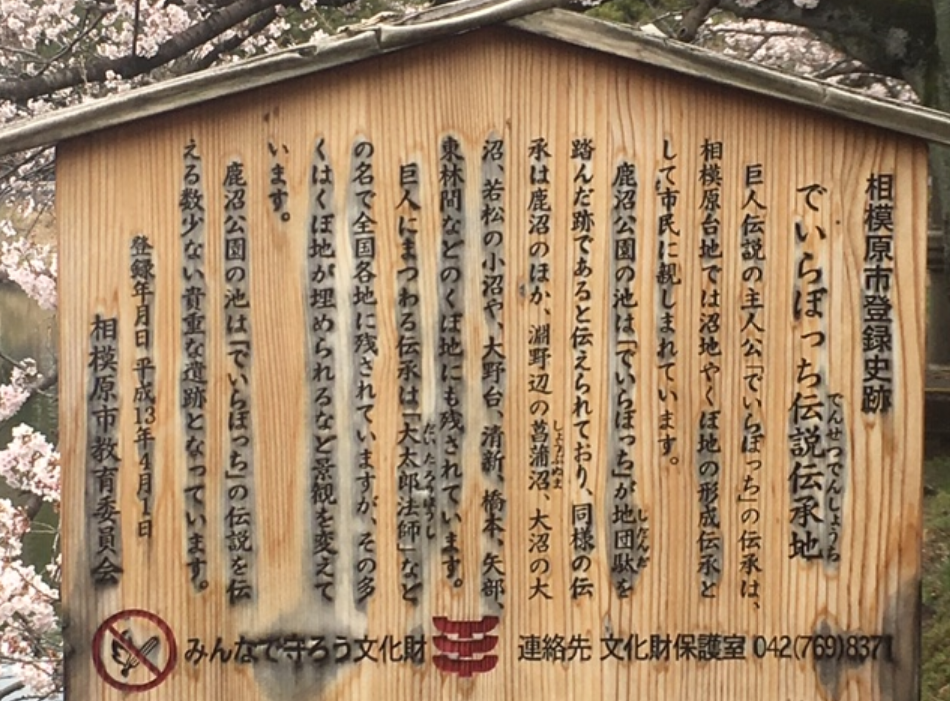 相模原市登録史跡
でいらぼっち伝説伝承地
でんせつでんしょうち
巨人伝説の主人公「でいらぼっち」の伝承は、
相模原台地では沼地やくぼ地の形成伝承と
して市民に親しまれています。
鹿沼公園の池は「でいらぼっち」が地団駄を
じだんだ
踏んだ跡であると伝えられており、同様の伝
承は鹿沼のほか、淵野辺の菖蒲沼、大沼の大
しょうぶぬま
沼、若松の小沼や、大野台、清新、橋本、矢部、
東林間などのくぼ地にも残されています。
巨人にまつわる伝承は「大太郎法師」など
だいたろほうし
の名で全国各地に残されていますが、その多
くはくぼ地が埋められるなど景観を変えて
います。
鹿沼公園の池は「でいらぼっち」の伝説を伝
える数少ない貴重な遺跡となっています。
登録年月日 平成13年4月1日
相模原市教育委員会
みんなで守ろう文化財
連絡先 文化財保護室 042(769)8371